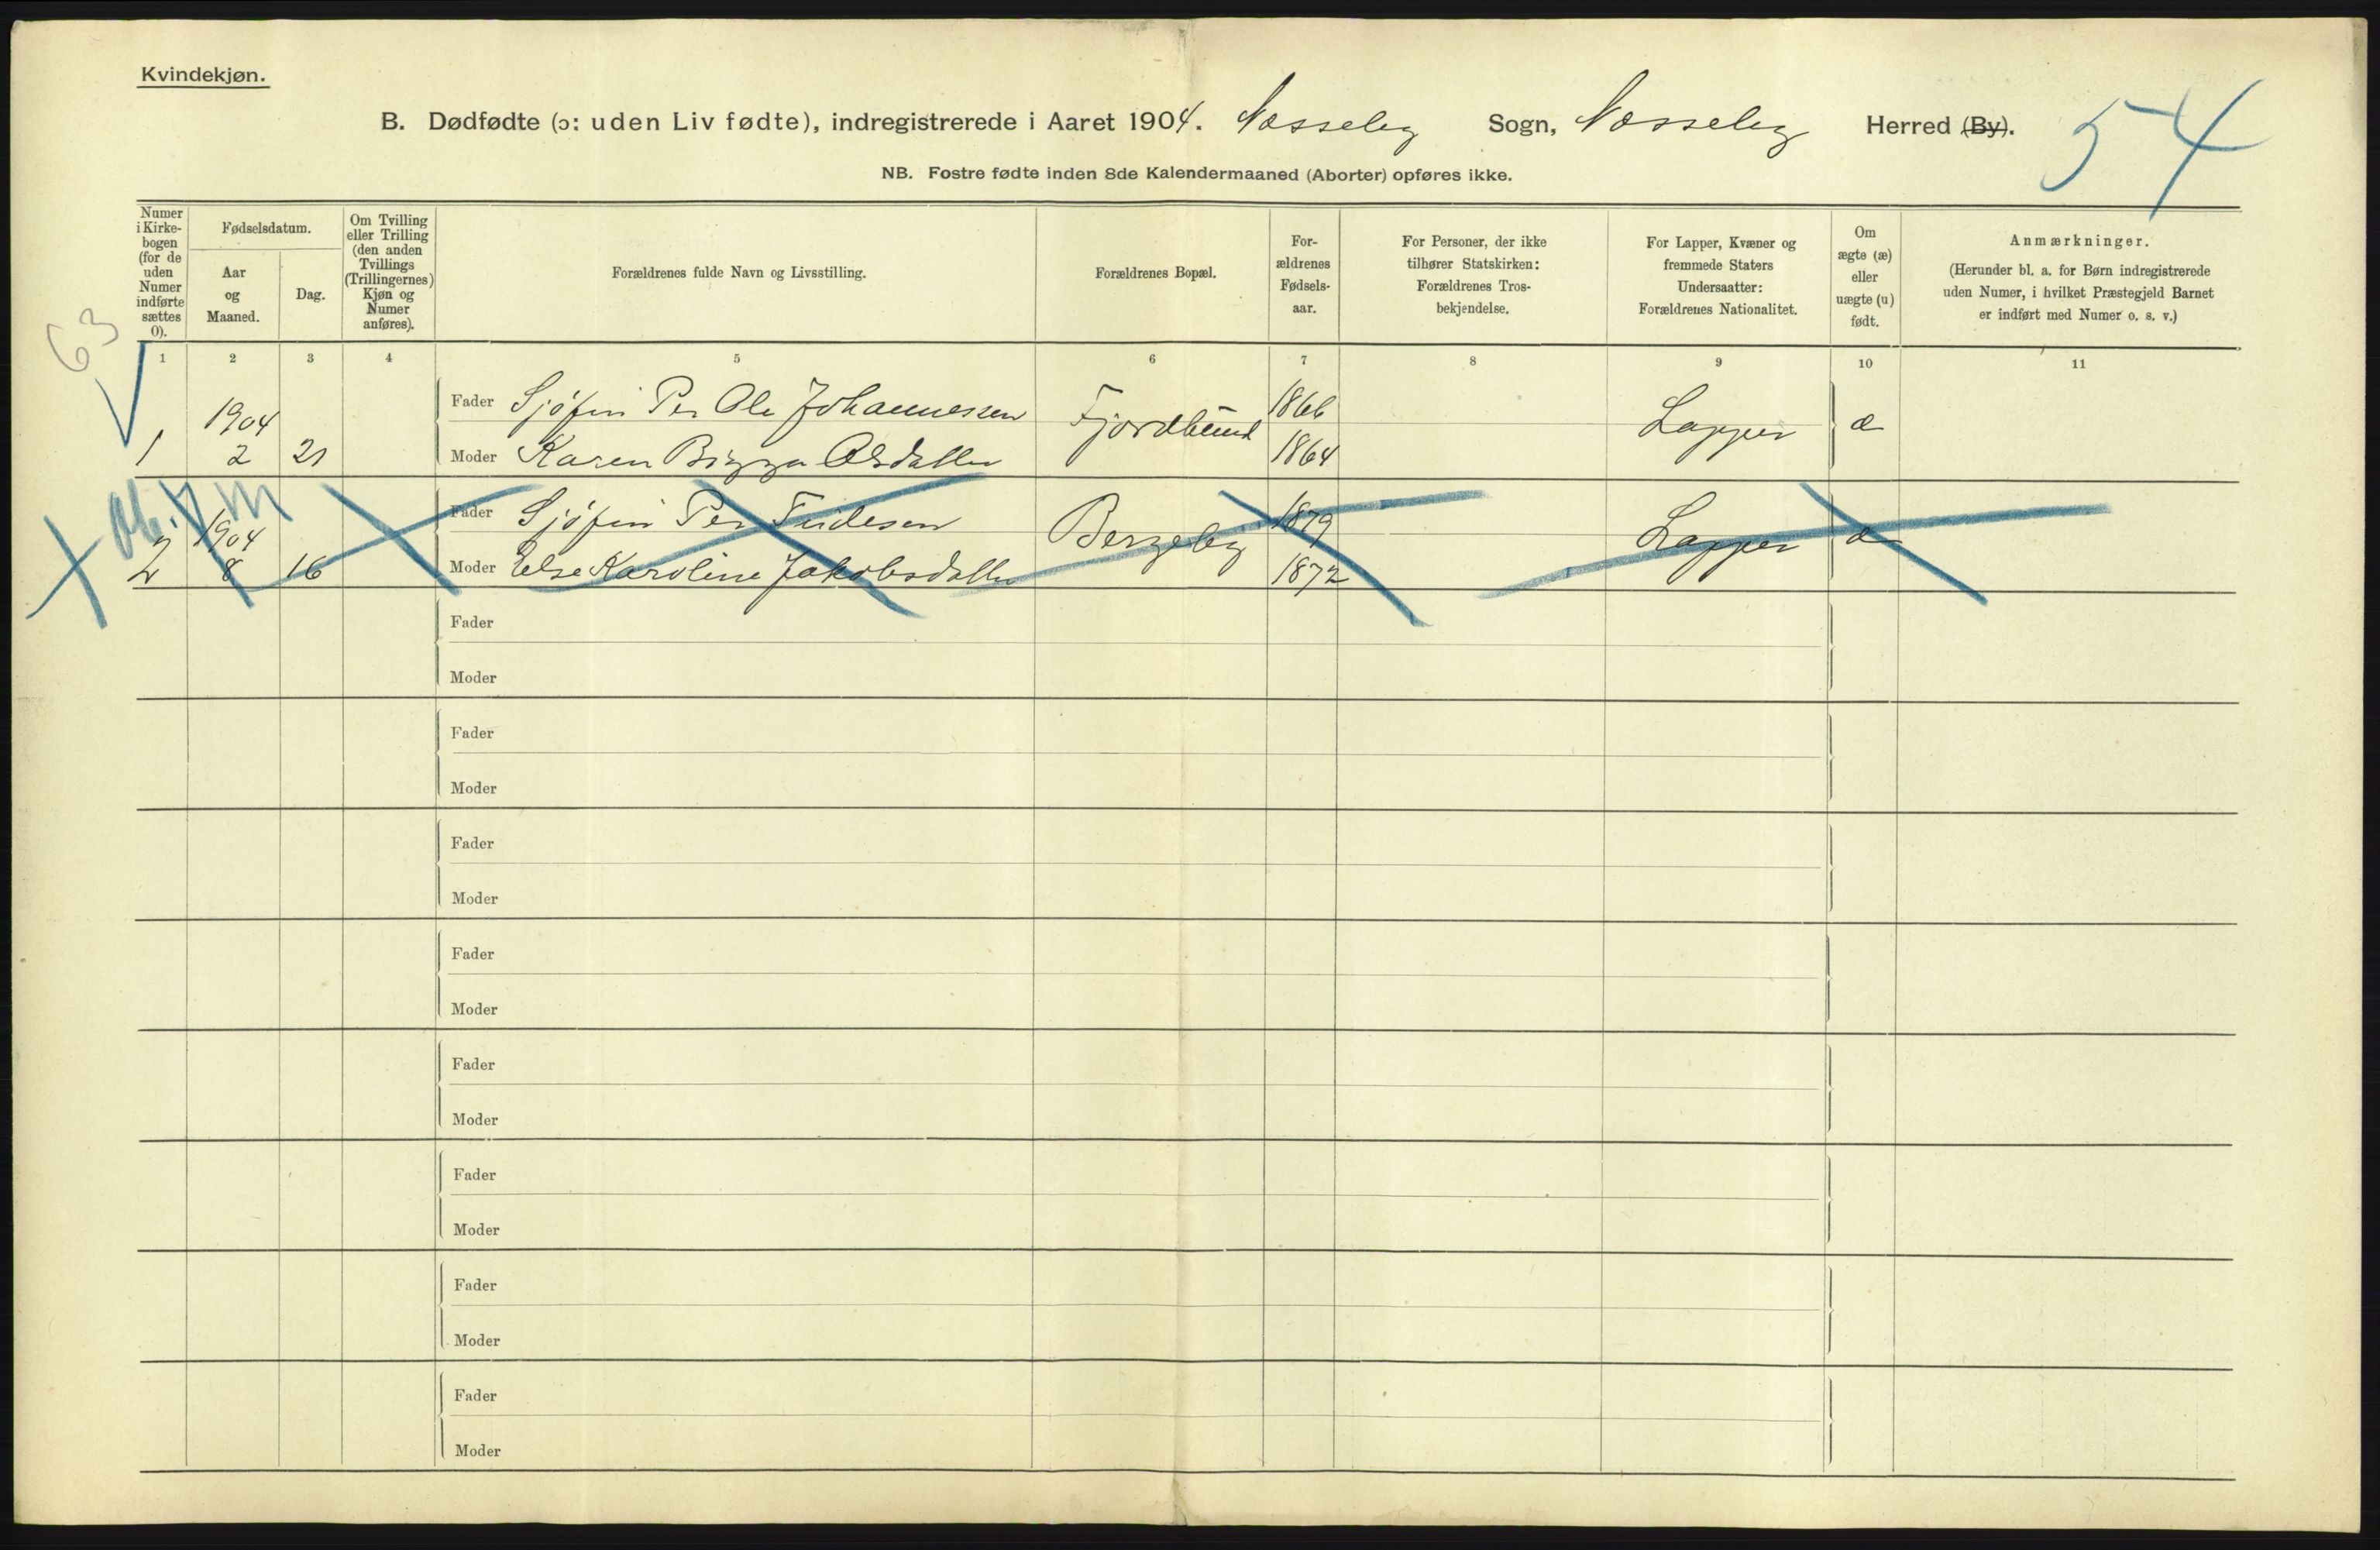 Kvindekjøn.
B. Dødfødte (ɔ: uden Liv fødte), indregistrerede i Aaret 1904. Næsseby Sogn, Næsseby Herred (By).
54
NB. Fostre fødte inden 8de Kalendermaaned (Aborter) opføres ikke.
Numer
i Kirke-
bogen
(for de
uden
Numer
indførte
sættes
0).
Fødselsdatum.
Aar
og
Maaned.
Dag.
Om Tvilling
eller Trilling
(den anden
Tvillings
(Trillingernes)
Kjøn og
Numer
anføres).
Forældrenes fulde Navn og Livsstilling.
Forældrenes Bopæl.
For-
ældrenes
Fødsels-
aar.
For Personer, der ikke
tilhører Statskirken:
Forældrenes Tros-
bekjendelse.
For Lapper, Kvæner og
fremmede Staters
Undersaatter:
Forældrenes Nationalitet.
Om
ægte (æ)
eller
uægte (u)
født.
Anmærkninger.
(Herunder bl. a. for Børn indregistrerede
uden Numer, i hvilket Præstegjeld Barnet
er indført med Numer o. s. v.)
63
1 2 3 4 5 6 7 8 9 10 11
Fader Sjøfin Per Ole Johannessen 1866
1904 Fjordbund Lapper æ
1 2 21 Moder Karen Bigga Olsdatter 1864
Fader Sjøfin Per 1879
1904 Bergeby Lapper æ
2 8 16 Moder Else Karoline Jakobsdatter 1872
Fader
Moder
Fader
Moder
Fader
Moder
Fader
Moder
Fader
Moder
Fader
Moder
Fader
Moder
Fader
Moder